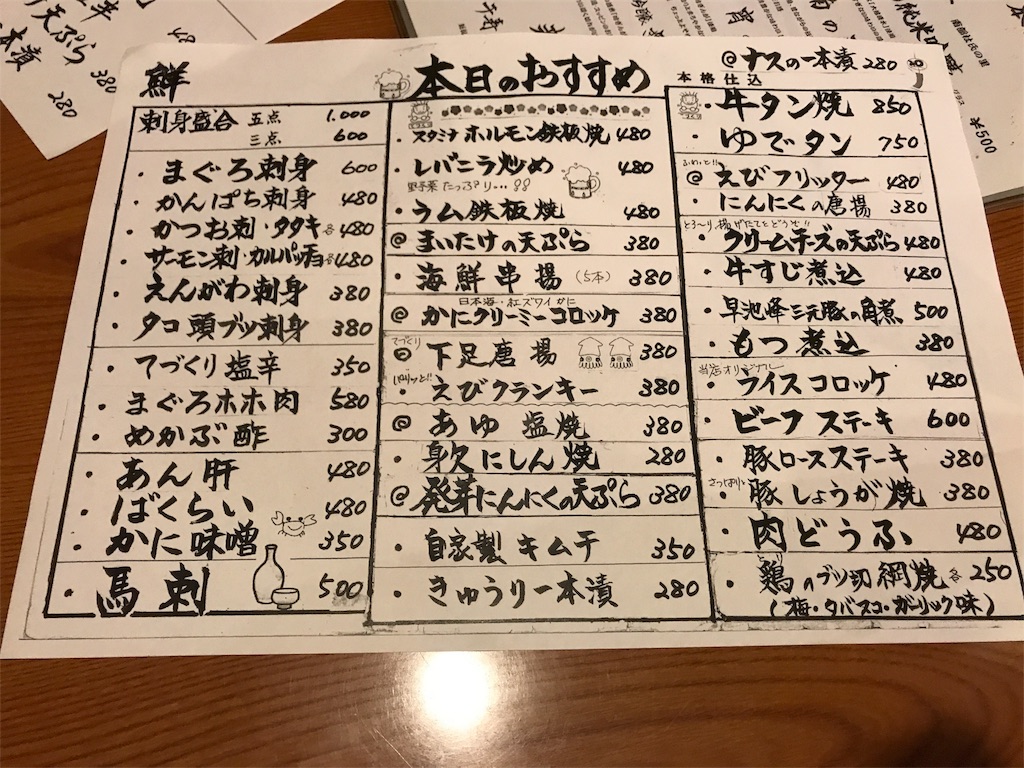 本日のおすすめ
@ナスの一本漬 280
鮮
刺身盛合 五点 1.000
三点 600
・まぐろ刺身 600
・かんぱち刺身 480
・かつお刺・タタキ各480
・サーモン刺・カルパッチョ各480
・えんがわ刺身 380
・タコ頭ブツ刺身 380
・てづくり塩辛 350
・まぐろホホ肉 580
・めかぶ酢 300
・あん肝 480
・ばくらい 480
・かに味噌 350
・馬刺 500
・スタミナ ホルモン鉄板焼 480
・レバニラ炒め 480
野菜たっぷり…!!
・ラム鉄板焼 480
@まいたけの天ぷら 380
・海鮮串揚(5本) 380
日本海・紅ズワイかに
@かにクリーミーコロッケ 380
てづくり
@下足唐揚 380
ぷりっと!!
・えびクランキー 380
@あゆ塩焼 380
・身欠にしん焼 280
@発芽にんにくの天ぷら 380
・自家製キムチ 350
・きゅうり一本漬 280
本格仕込
・牛タン焼 850
・ゆでタン 750
ふわっと!!
@えびフリッター 480
・にんにくの唐揚 380
とろ〜り揚げたてをどうぞ!!
・クリームチーズの天ぷら 480
・牛すじ煮込 480
・早池峰三元豚の角煮 500
・もつ煮込 380
当店オリジナル
・ライスコロッケ 480
・ビーフステーキ 600
・豚ロースステーキ 380
さっぱりと
・豚しょうが焼 380
・肉どうふ 480
・鶏のブツ切網焼 各250
(梅・タバスコ・ガーリック味)
天ぷら 380
本漬 280
480
純米吟醸
南部杜氏の里
グラス
¥500